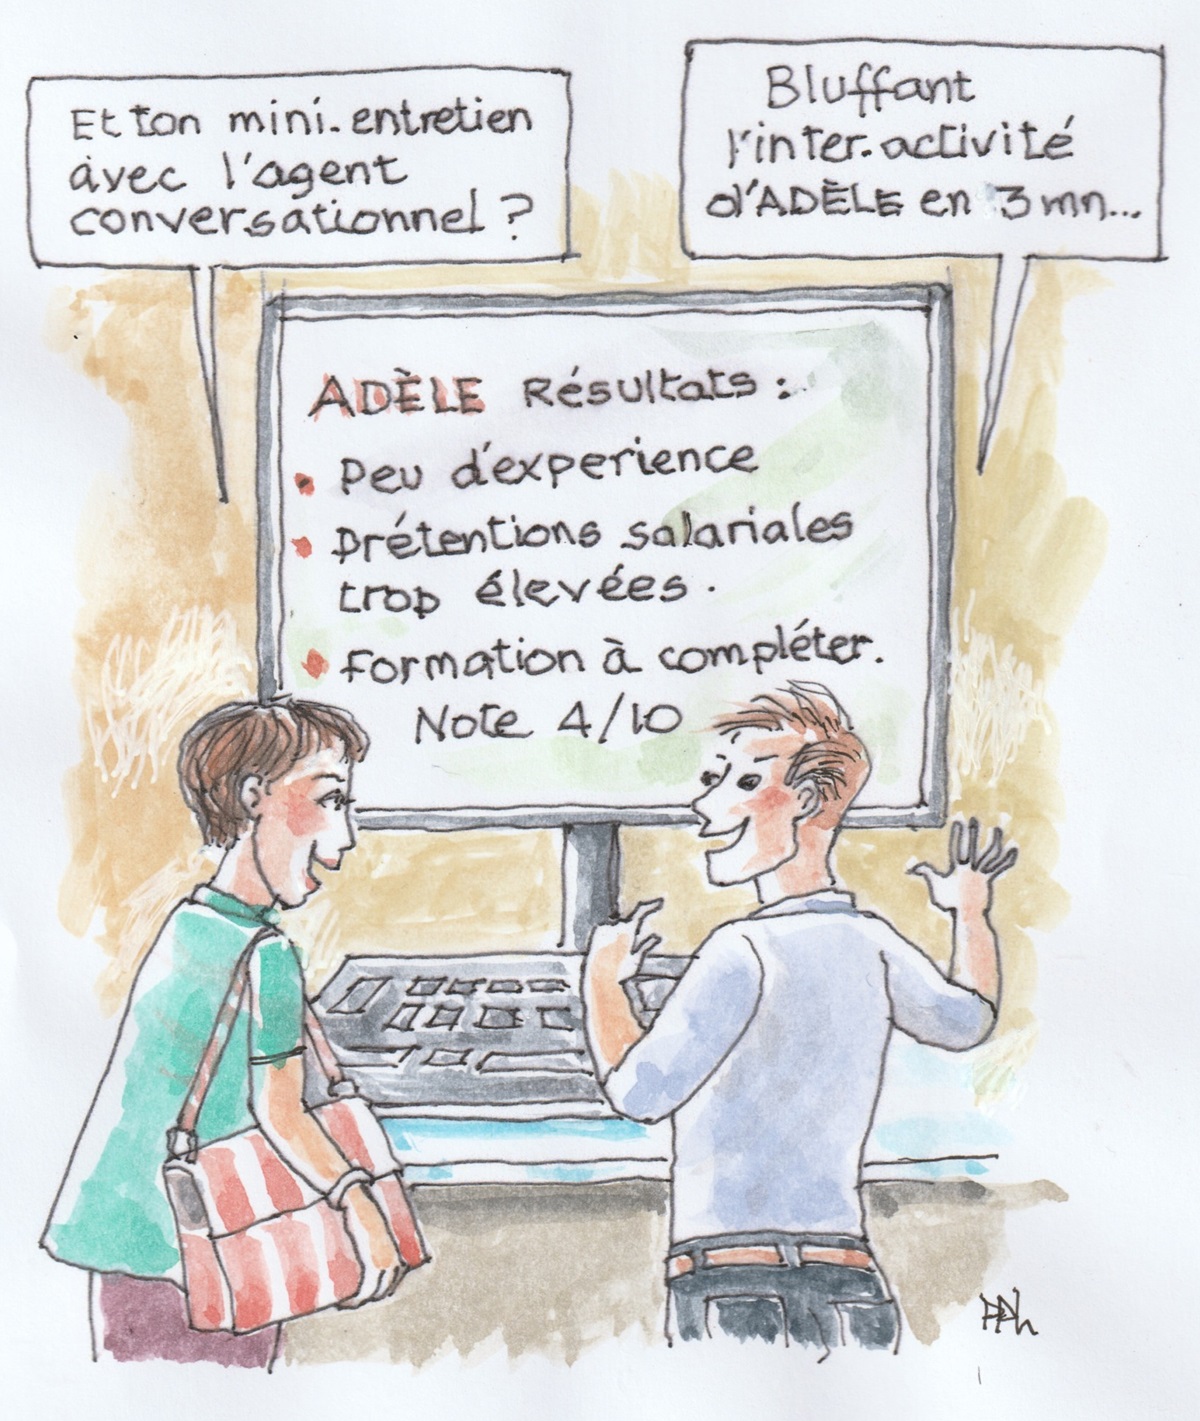 Et ton mini-entretien
avec l'agent
conversationnel ?
Bluffant
l'inter-activité
d'ADÈLE en 3 mn...
ADÈLE Résultats :
• Peu d'experience
• Prétentions salariales
trop élevées.
• Formation à compléter.
Note 4/10
PPh